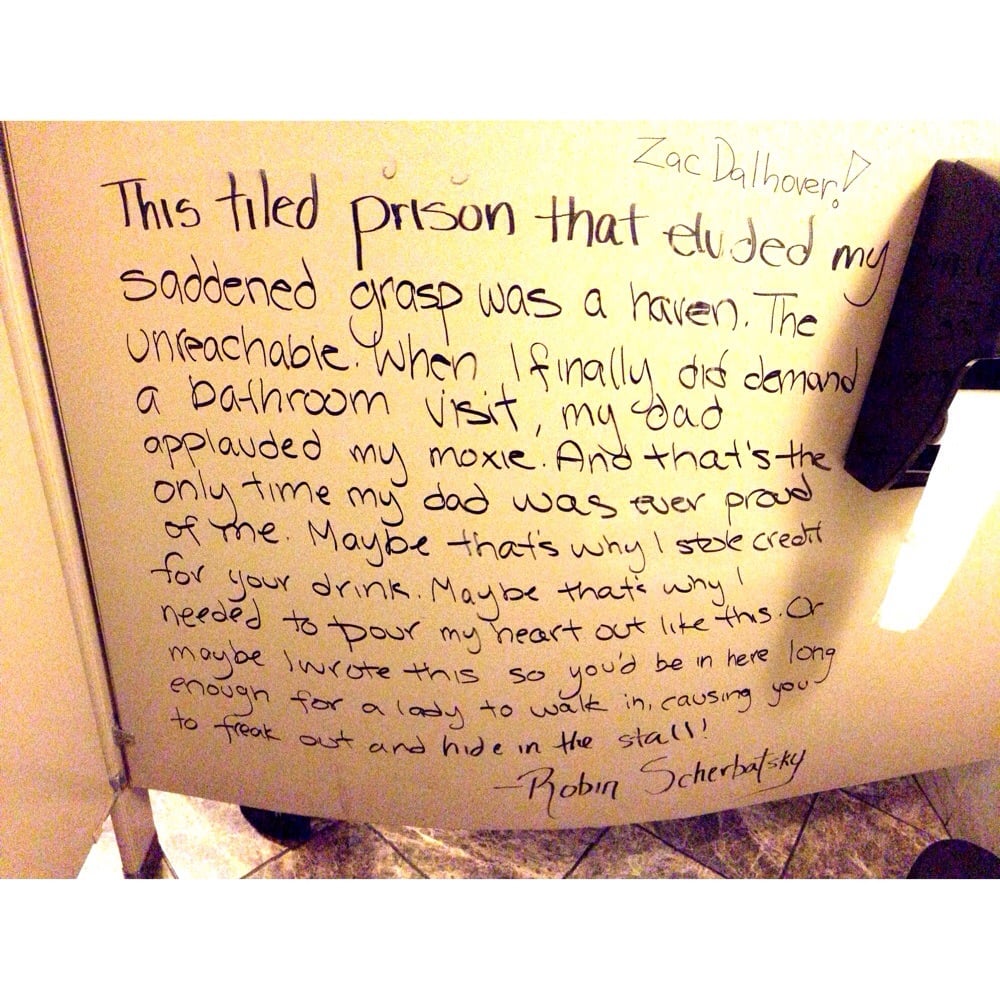 Zac Dalhover!
This tiled prison that eluded my
saddened grasp was a haven. The
unreachable. When I finally did demand
a bathroom visit, my dad
applauded my moxie. And that's the
only time my dad was ever proud
of me. Maybe that's why I stole credit
for your drink. Maybe that's why I
needed to pour my heart out like this. Or
maybe I wrote this so you'd be in here long
enough for a lady to walk in, causing you
to freak out and hide in the stall!
-Robin Scherbatsky